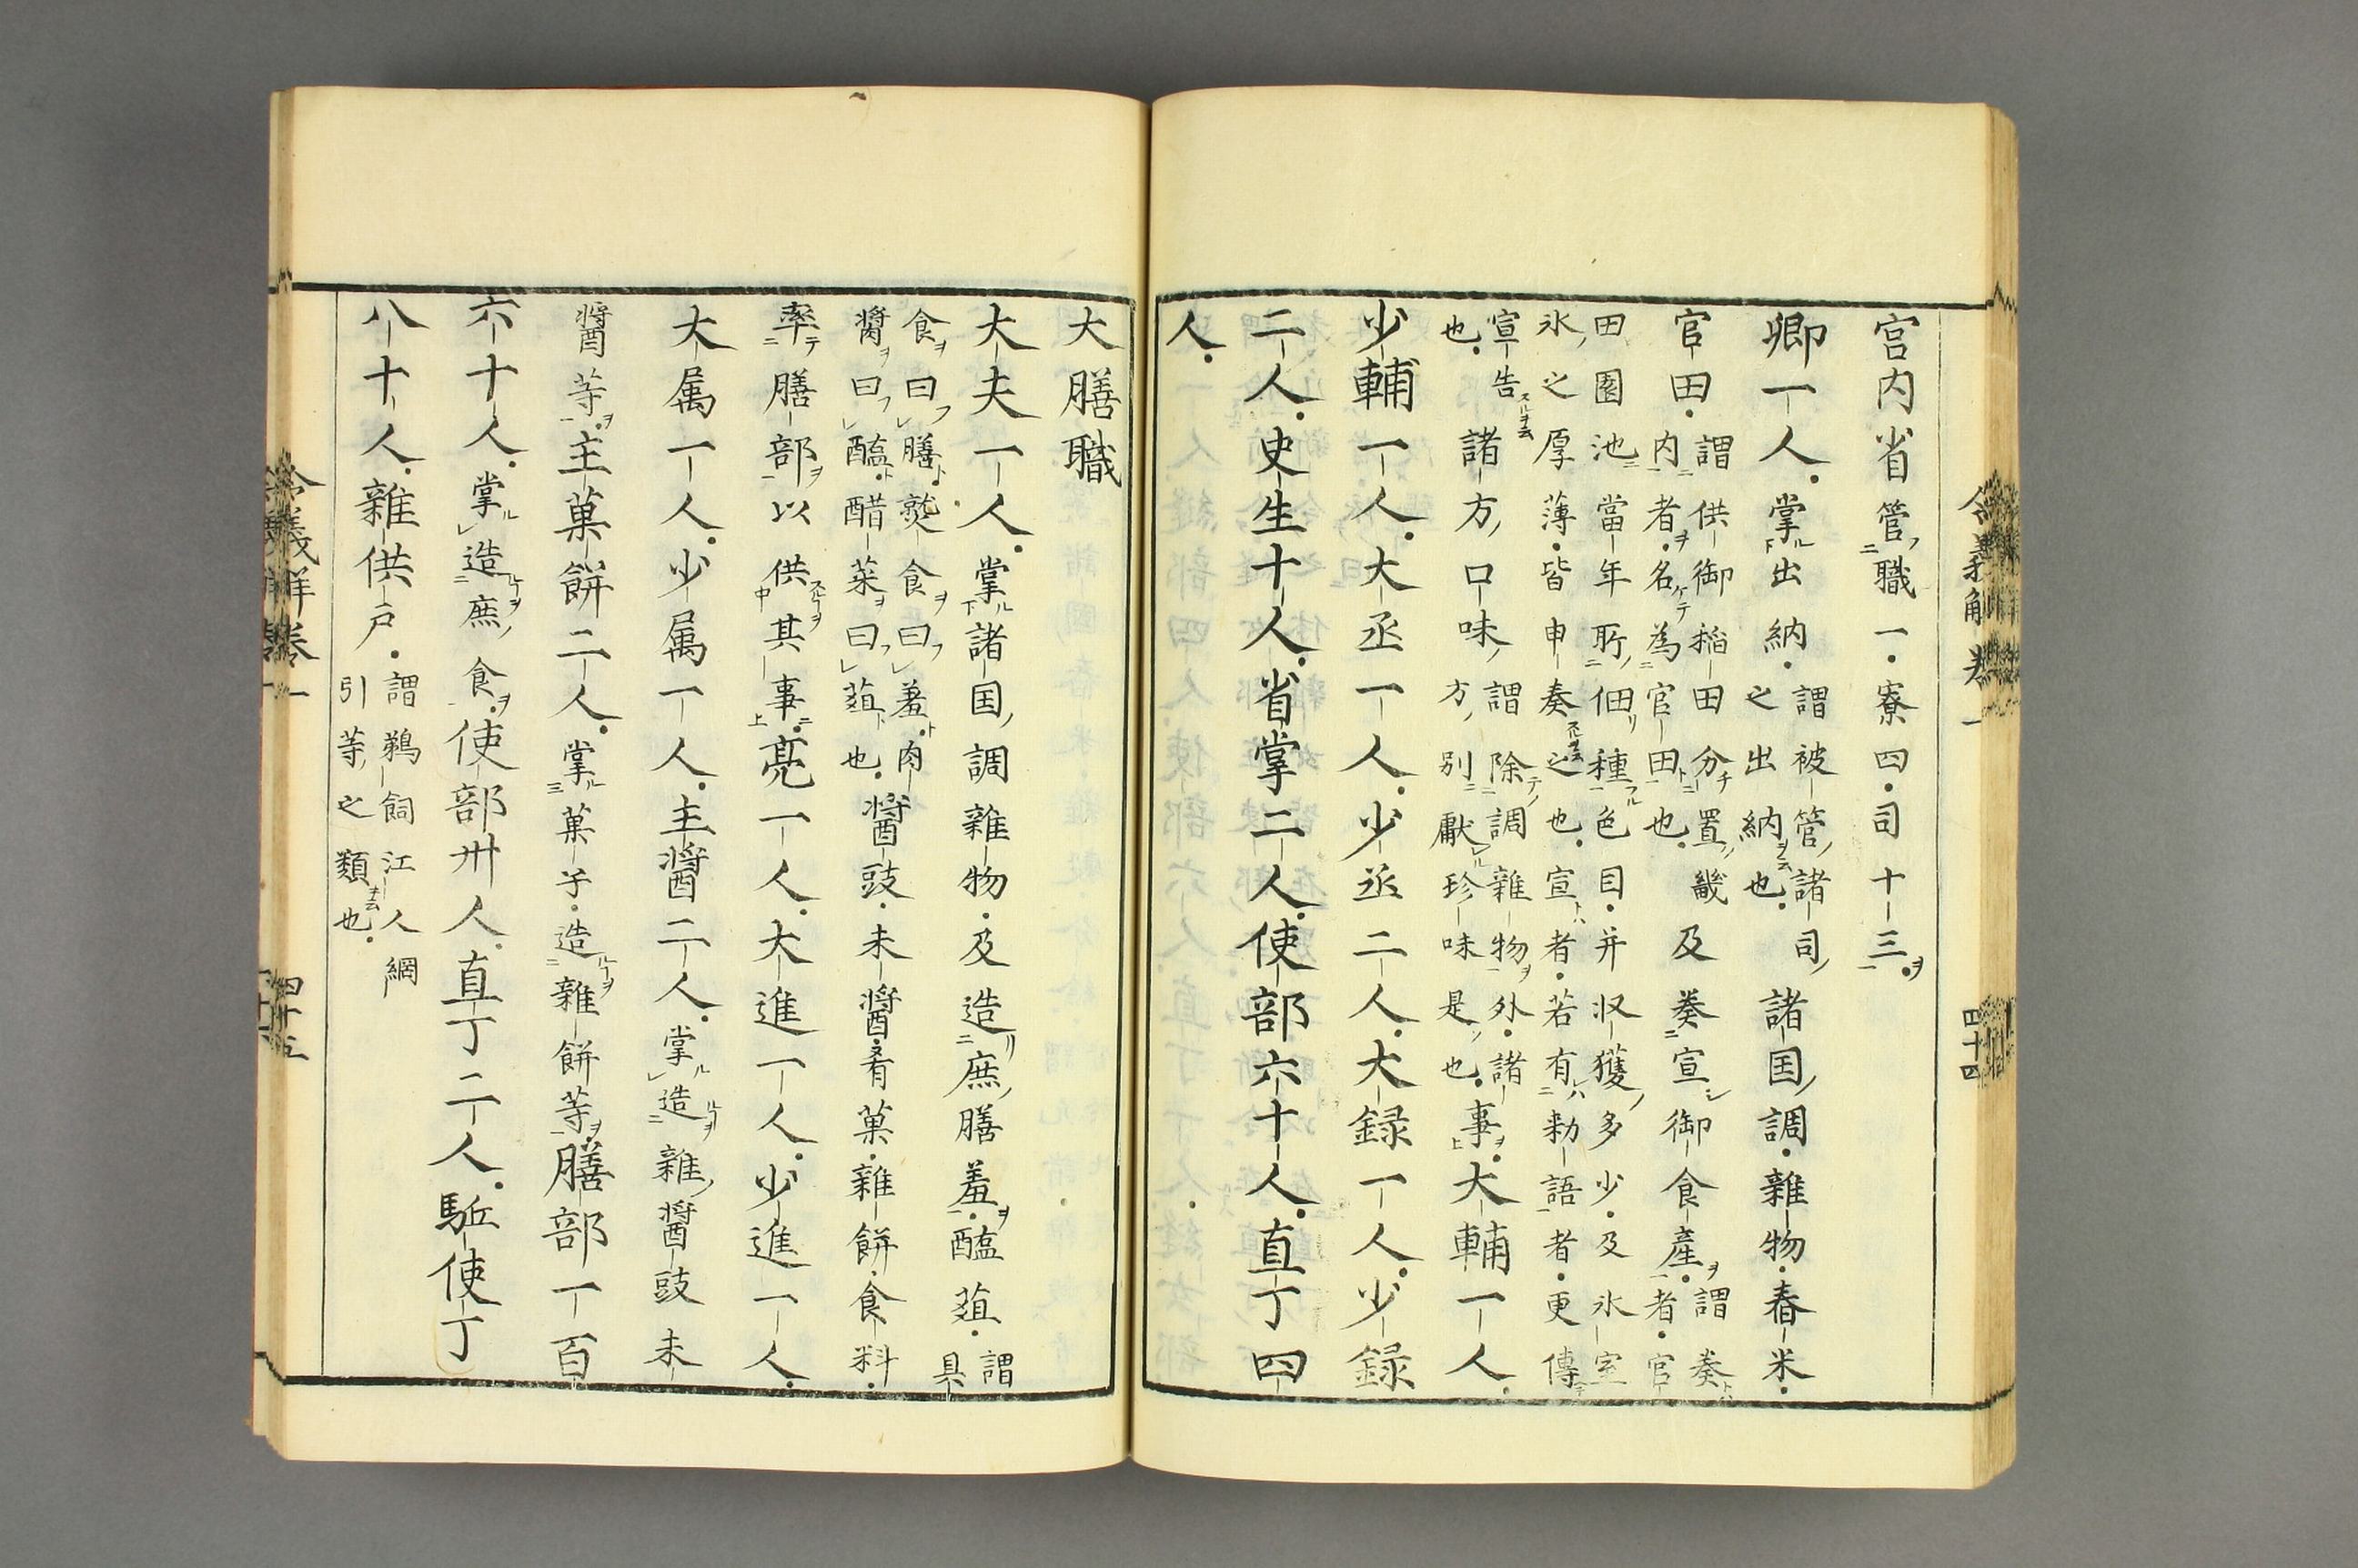 令義解卷一 四十四
宮内省管職一寮四司十三
卿一人掌出納謂被管諸司之出納也諸国調雜物舂米
官田謂供御稲田分置畿内者名為官田也及奏宣御食産謂奏者官
田園池當年所佃種色目并収獲多少及氷室
氷之厚薄皆申奏之也宣者若有勅語者更傳
宣告也諸方口味謂除調雜物外諸方別献珍味是也事大輔一人
少輔一人大丞一人少丞二人大録一人少録
二人史生十人省掌二人使部六十人直丁四
人
大膳職
大夫一人掌諸国調雜物及造庶膳羞醢葅謂具
食曰膳熬食曰羞肉
醤曰醢醋菜曰葅也醤豉未醤肴菓雜餅食料
率膳部以供其事亮一人大進一人少進一人
大属一人少属一人主醤二人掌造雜醤豉未
醤等主菓餅二人掌菓子造雜餅等膳部一百
六十人掌造庶食使部卅人直丁二人駈使丁
八十人雜供戸謂鵜飼江人網引等之類也
令義解卷一 四十五